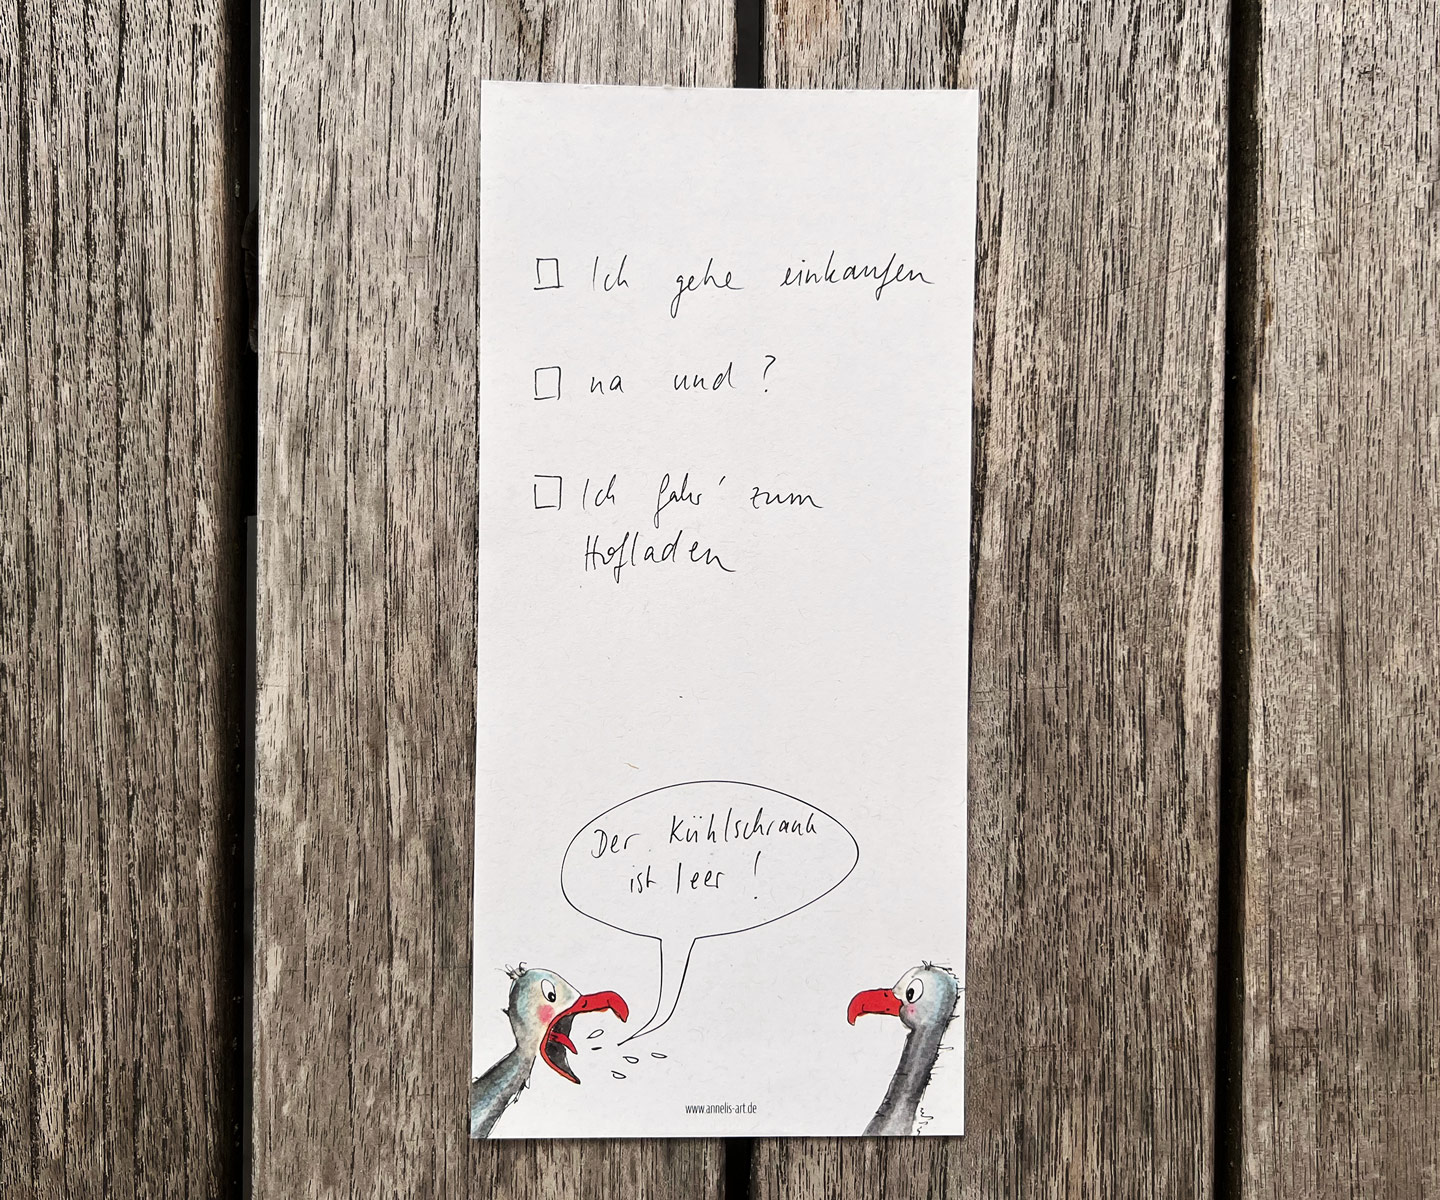 Ich gehe einkaufen
na und?
Ich fahr' zum
Hofladen
Der Kühlschrank
ist leer!
www.annelis-art.de